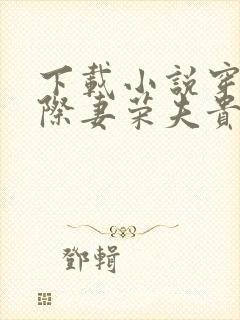 下載小說穿
際妻荣夫貴
鄧輯